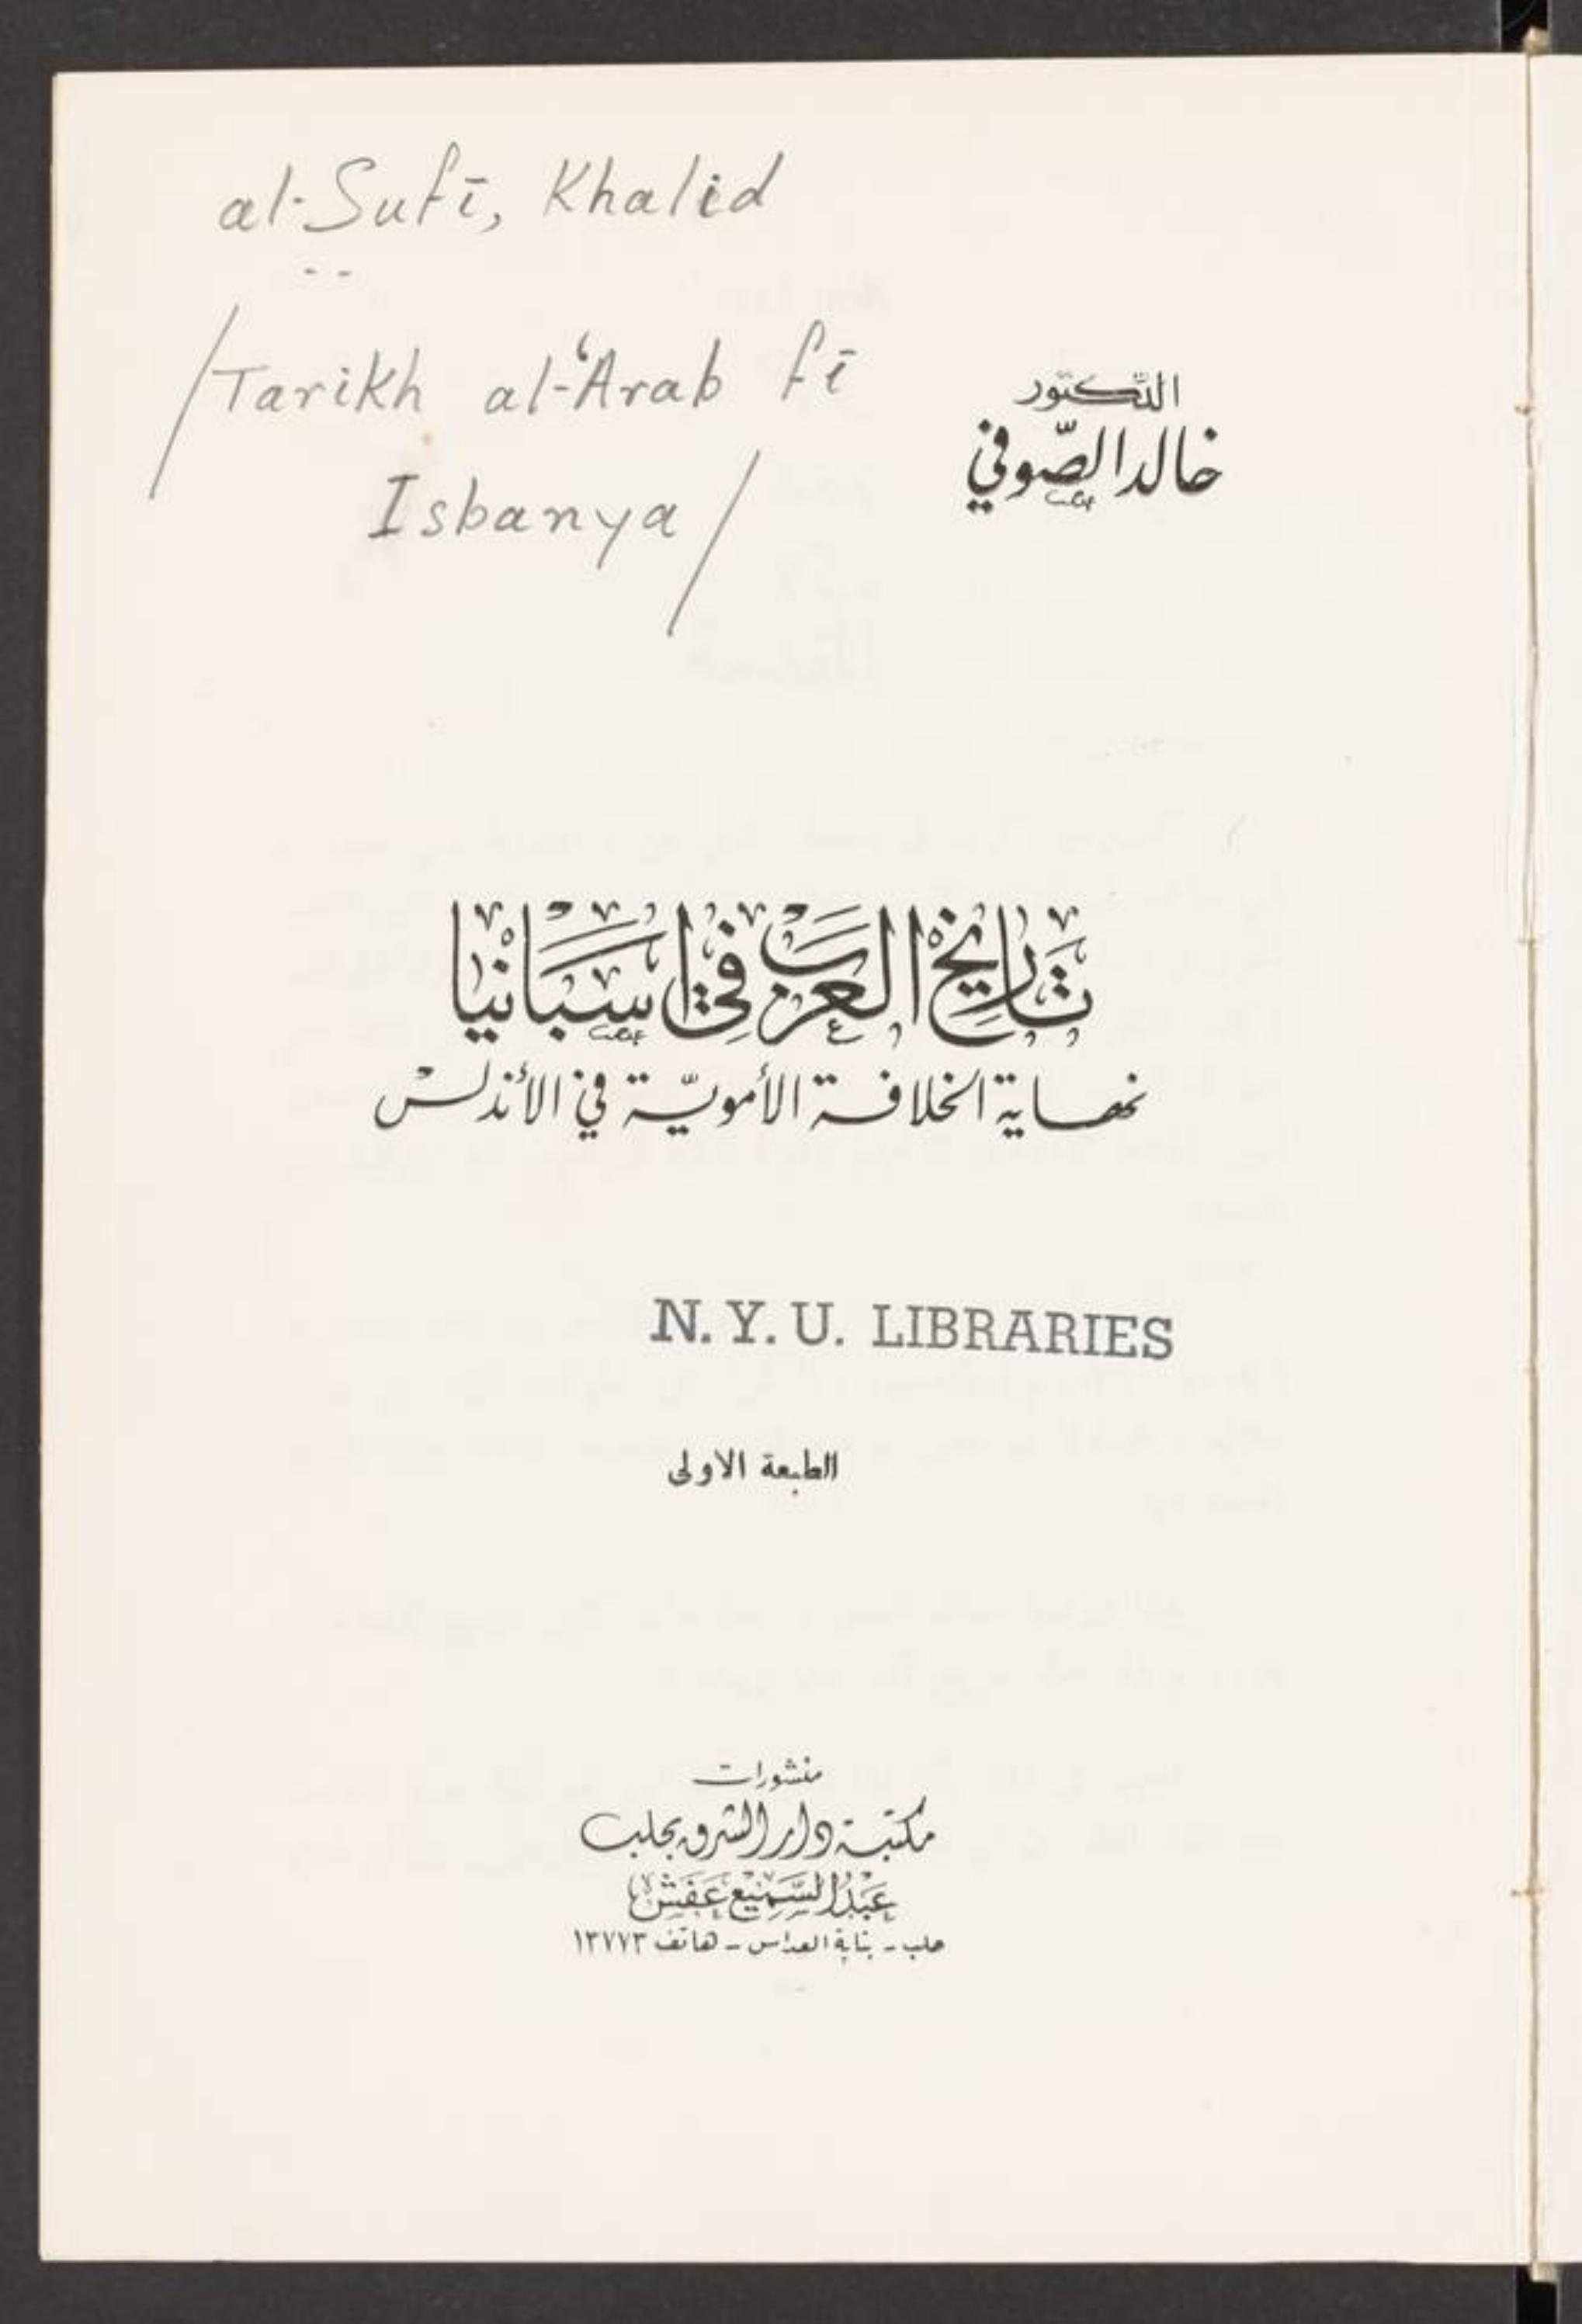 al-Sufī, Khalid
/Tarikh al-‘Arab fī
Isbanya/
الدكتور
خالد الصّوفي
تَارِيخُ العَرَبِ فِي اسْبَانْيَا
نهاية الخلافة الأمويّة في الأندلسْ
N. Y. U. LIBRARIES
الطبعة الاولى
منشورات
مكتبة دار الشرق بحلب
عَبْدُ السَّمِيْع عَفَش
حلب - بناية العداس - هاتف ١٣٧٧٣